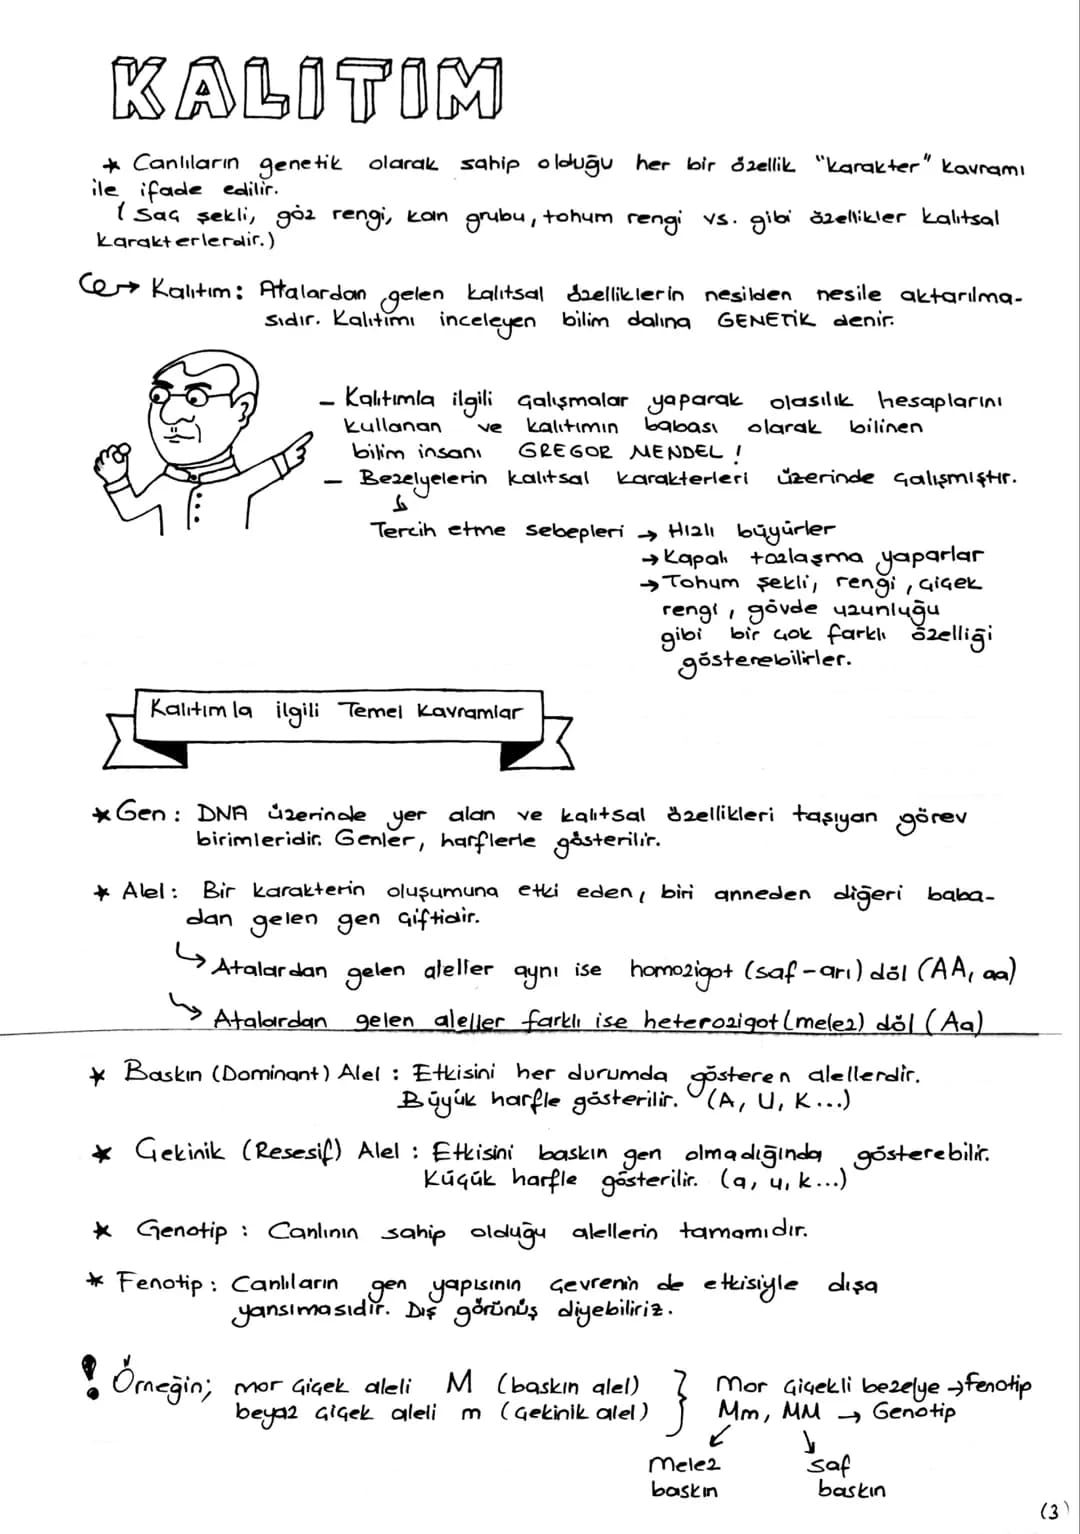 KALITIM
* Canlıların genetik olarak sahip olduğu her bir özellik "karakter" kavramı
ile ifade edilir.
( Saç şekli, göz rengi, kan grubu, tohum rengi vs. gibi özellikler kalıtsal
karakterlerdir.)
→ Kalıtım: Atalardan gelen kalıtsal özelliklerin nesilden nesile aktarılma-
sıdır. Kalıtımı inceleyen bilim dalına GENETİK denir.
- Kalıtımla ilgili çalışmalar yaparak olasılık hesaplarını
kullanan ve kalıtımın babası olarak bilinen
bilim insanı GREGOR MENDEL !
- Bezelyelerin kalıtsal karakterleri üzerinde çalışmıştır.
Tercih etme sebepleri → Hızlı büyürler
→ Kapalı tozlaşma yaparlar
→ Tohum şekli, rengi, çiçek
rengi, gövde uzunluğu
gibi bir çok farklı özelliği
gösterebilirler.
Kalıtımla ilgili Temel Kavramlar
* Gen : DNA üzerinde yer alan ve kalıtsal özellikleri taşıyan görev
birimleridir. Genler, harflerle gösterilir.
* Alel : Bir karakterin oluşumuna etki eden, biri anneden diğeri baba-
dan gelen gen çiftidir.
↳ Atalardan gelen aleller aynı ise homozigot (saf-arı) döl (AA, aa)
↳ Atalardan gelen aleller farklı ise heterozigot (melez) döl (Aa)
* Baskın (Dominant) Alel : Etkisini her durumda gösteren alellerdir.
Büyük harfle gösterilir. (A, U, K...)
* Çekinik (Resesif) Alel : Etkisini baskın gen olmadığında gösterebilir.
Küçük harfle gösterilir. (a, u, k...)
* Genotip : Canlının sahip olduğu alellerin tamamıdır.
* Fenotip : Canlıların gen yapısının çevrenin de etkisiyle dışa
yansımasıdır. Dış görünüş diyebiliriz.
! Örneğin; mor çiçek aleli M (baskın alel) } Mor çiçekli bezelye → fenotip
beyaz çiçek aleli m (çekinik alel) Mm, MM → Genotip
Melez saf
baskın baskın
(3)